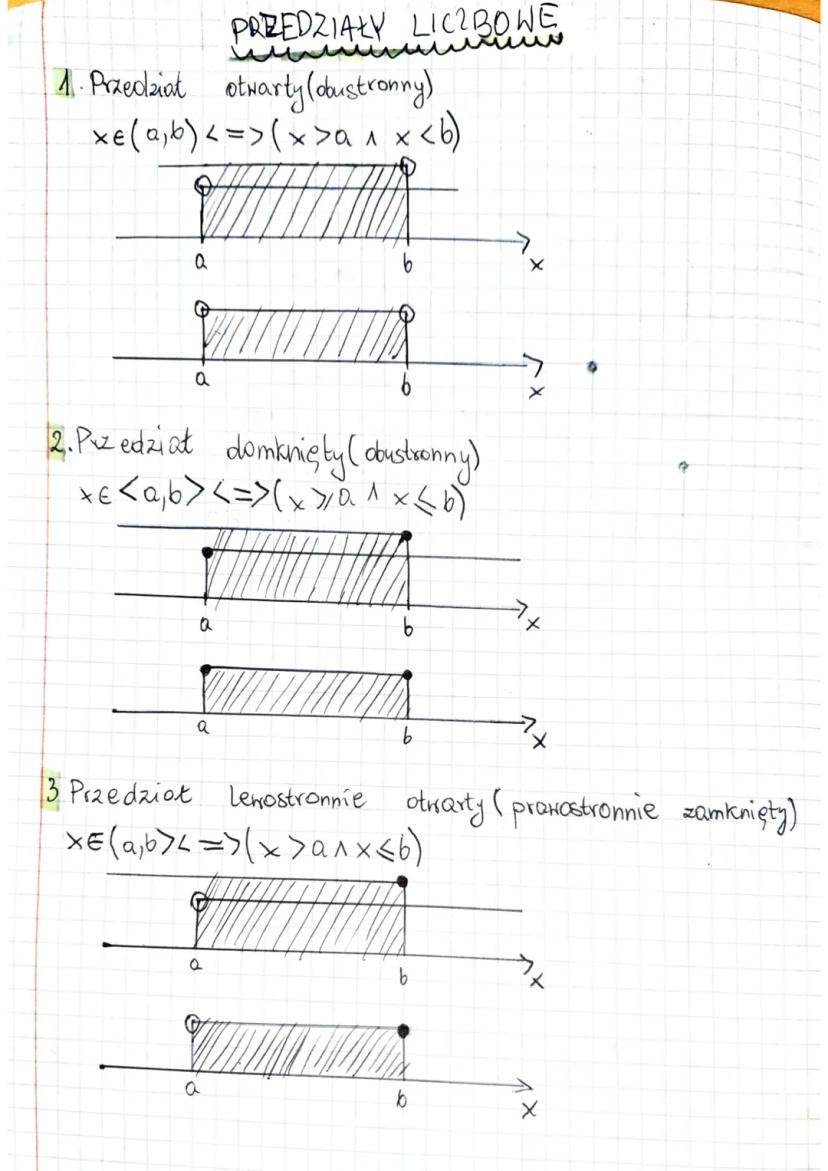 PRZEDZIAŁY LICZBOWE
1. Przedział otwarty (obustronny)
x∈(a,b) <=> (x>a ∧ x<b)
a b x
a b x
2. Przedział domknięty (obustronny)
x∈<a,b> <=> (x⩾a ∧ x⩽b)
a b x
a b x
3 Przedział lewostronnie otwarty (prawostronnie zamknięty)
x∈(a,b> <=> (x>a ∧ x⩽b)
a b x
a b x